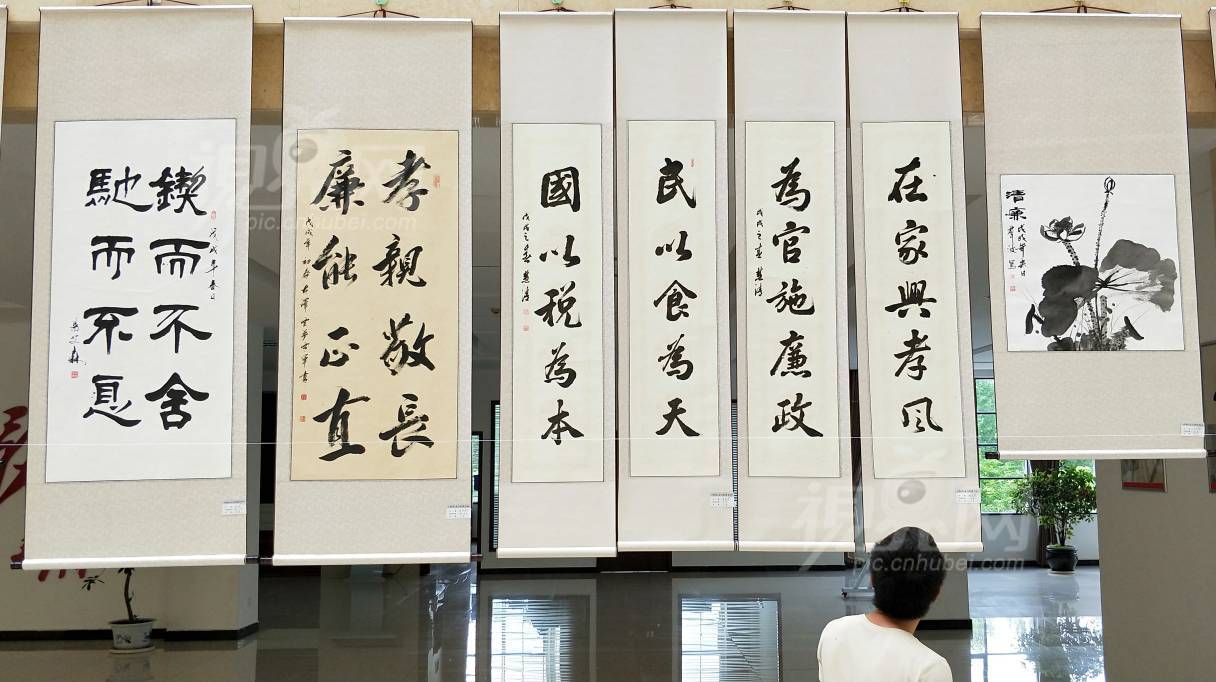 鍥而不舍
馳而不息
戊戌年春日
孝親敬長
廉能正直
戊戌年初春
在家興孝风
為官施廉政
戊戌之春
民以食為天
國以税為本
戊戌之春
清廉
戊戌年春日
pic.cnhubei.com
pic.cnhubei.com